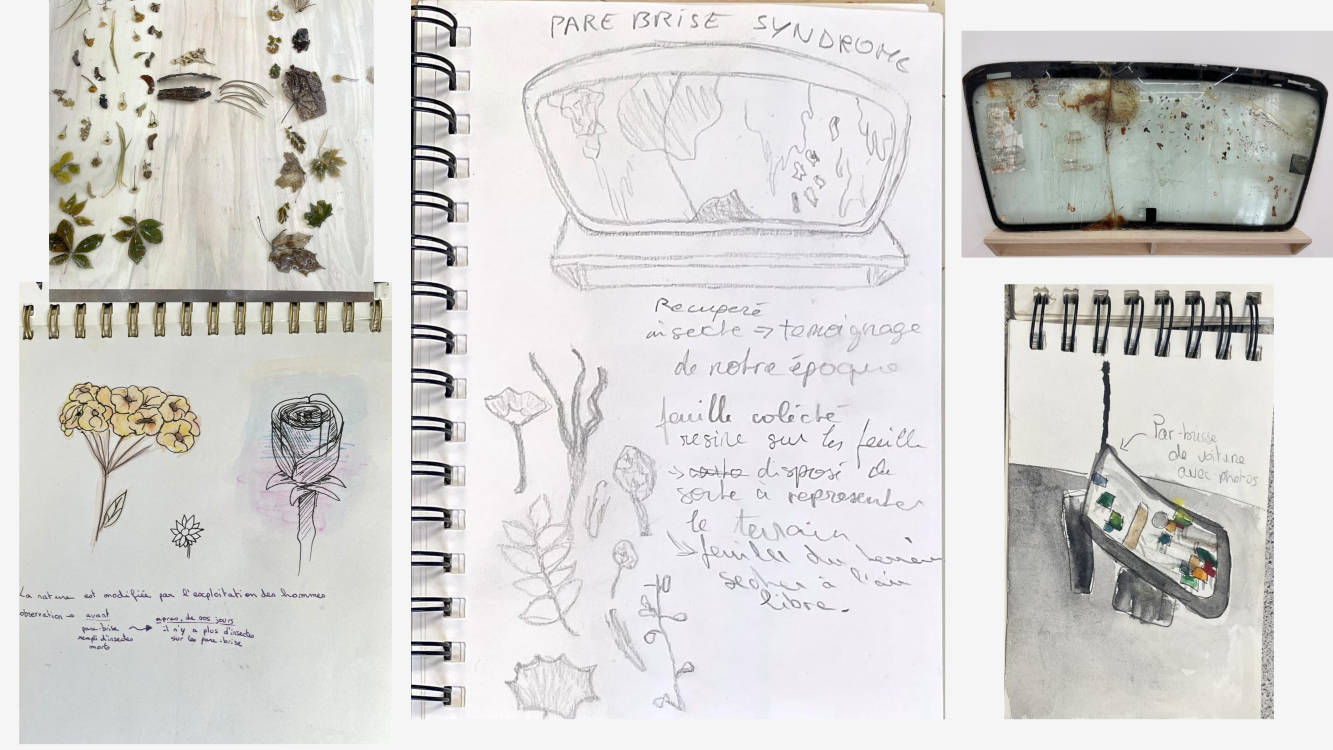 PARE BRISE SYNDROME
Recuperé
insecte => temoignage
de notre époque
feuille colécté
resine sur les feuille
-> disposé de
sorte à representer
le terrain
-> feuilles du terrain
sécher à l'air
libre.
La nature est modifiée par l'exploitation des hommes
observation -> avant
pare-brise
rempli d'insectes
morts
après, de nos jours
il n'y a plus d'insectes
sur les pare-brise
Par-brisse
de voiture
avec photos